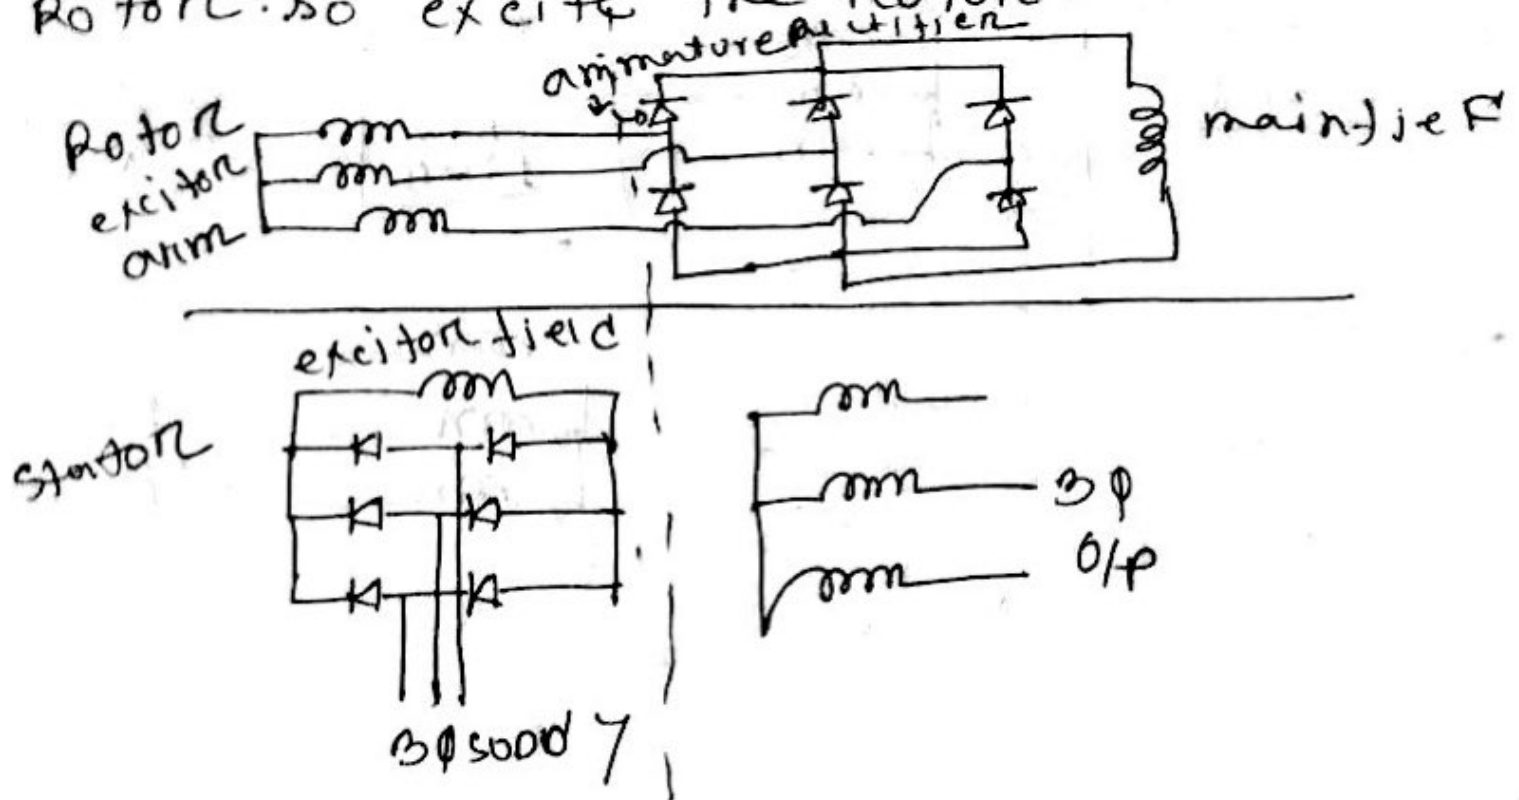 Rotor. so excite the Rotor
armature Rectifier
Rotor
excitor
arm
main field
excitor field
stator
3φ
O/P
3φ